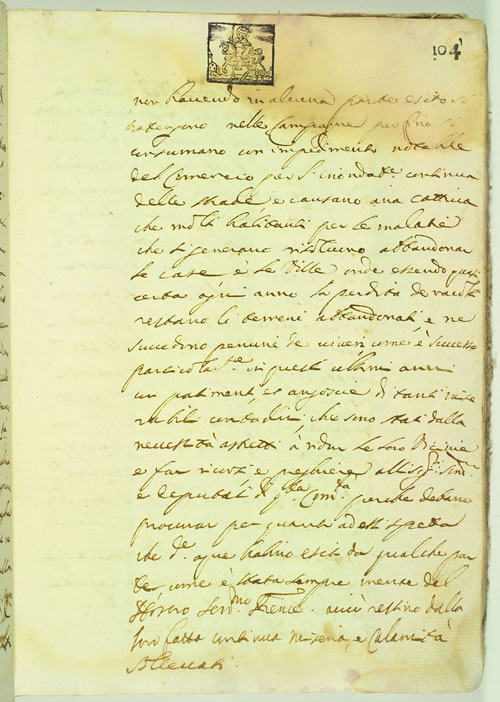 104
non havendo in alcuna parte esito si
trattengono nelle Campagne per fino si
consumano con impedimento notabile
del Comercio per l'inondat.e continua
delle strade e causano aria cattiva
che molti habitanti per le malatie
che si generano risolvono abbandonar
le case e le Ville onde essendo quasi
certa ogni anno la perdita de racolti
restano li terreni abbandonati e ne
succedono penurie de viveri come è successo
particolar.te in questi ultimi anni
con patimenti et angoscie di tanti mise
rabili contadini, che sono stati dalla
necessità astretti à
e far ricorsi e preghiere alli sig.i Sind.i
e deputati di q.ta Com.tà perche debano
procurar per quanto ad essi spetta
che d.e aque habino esito da qualche par
te come è stata sempre mente del
Ser.mo acciò restino dalla
loro continua miseria, e Calamità
sollevati.